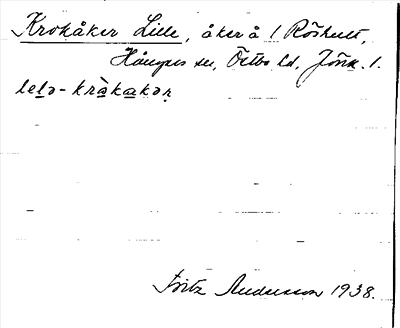 Krokåker Lille, åker å 1 Röshult,
Hångers sn, Östbo hd, Jönk. l.
lelə-kràkakəɳ
Fritz Andersson 1938.